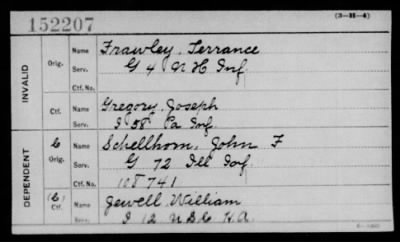 152207
(3-H-4)
INVALID
Orig.
Name Frawley, Terrance
Serv. G 4 N H Inf.
Ctf. No.
Ctf.
Name Gregory, Joseph
Serv. I 58" Pa Inf
DEPENDENT
C
Orig.
Name Schellhorn, John F
Serv. G 72 Ill Inf.
Ctf. No. 108741
(C)
Ctf.
Name Jewell, William
Serv. I 12 U.S.C. H.A.